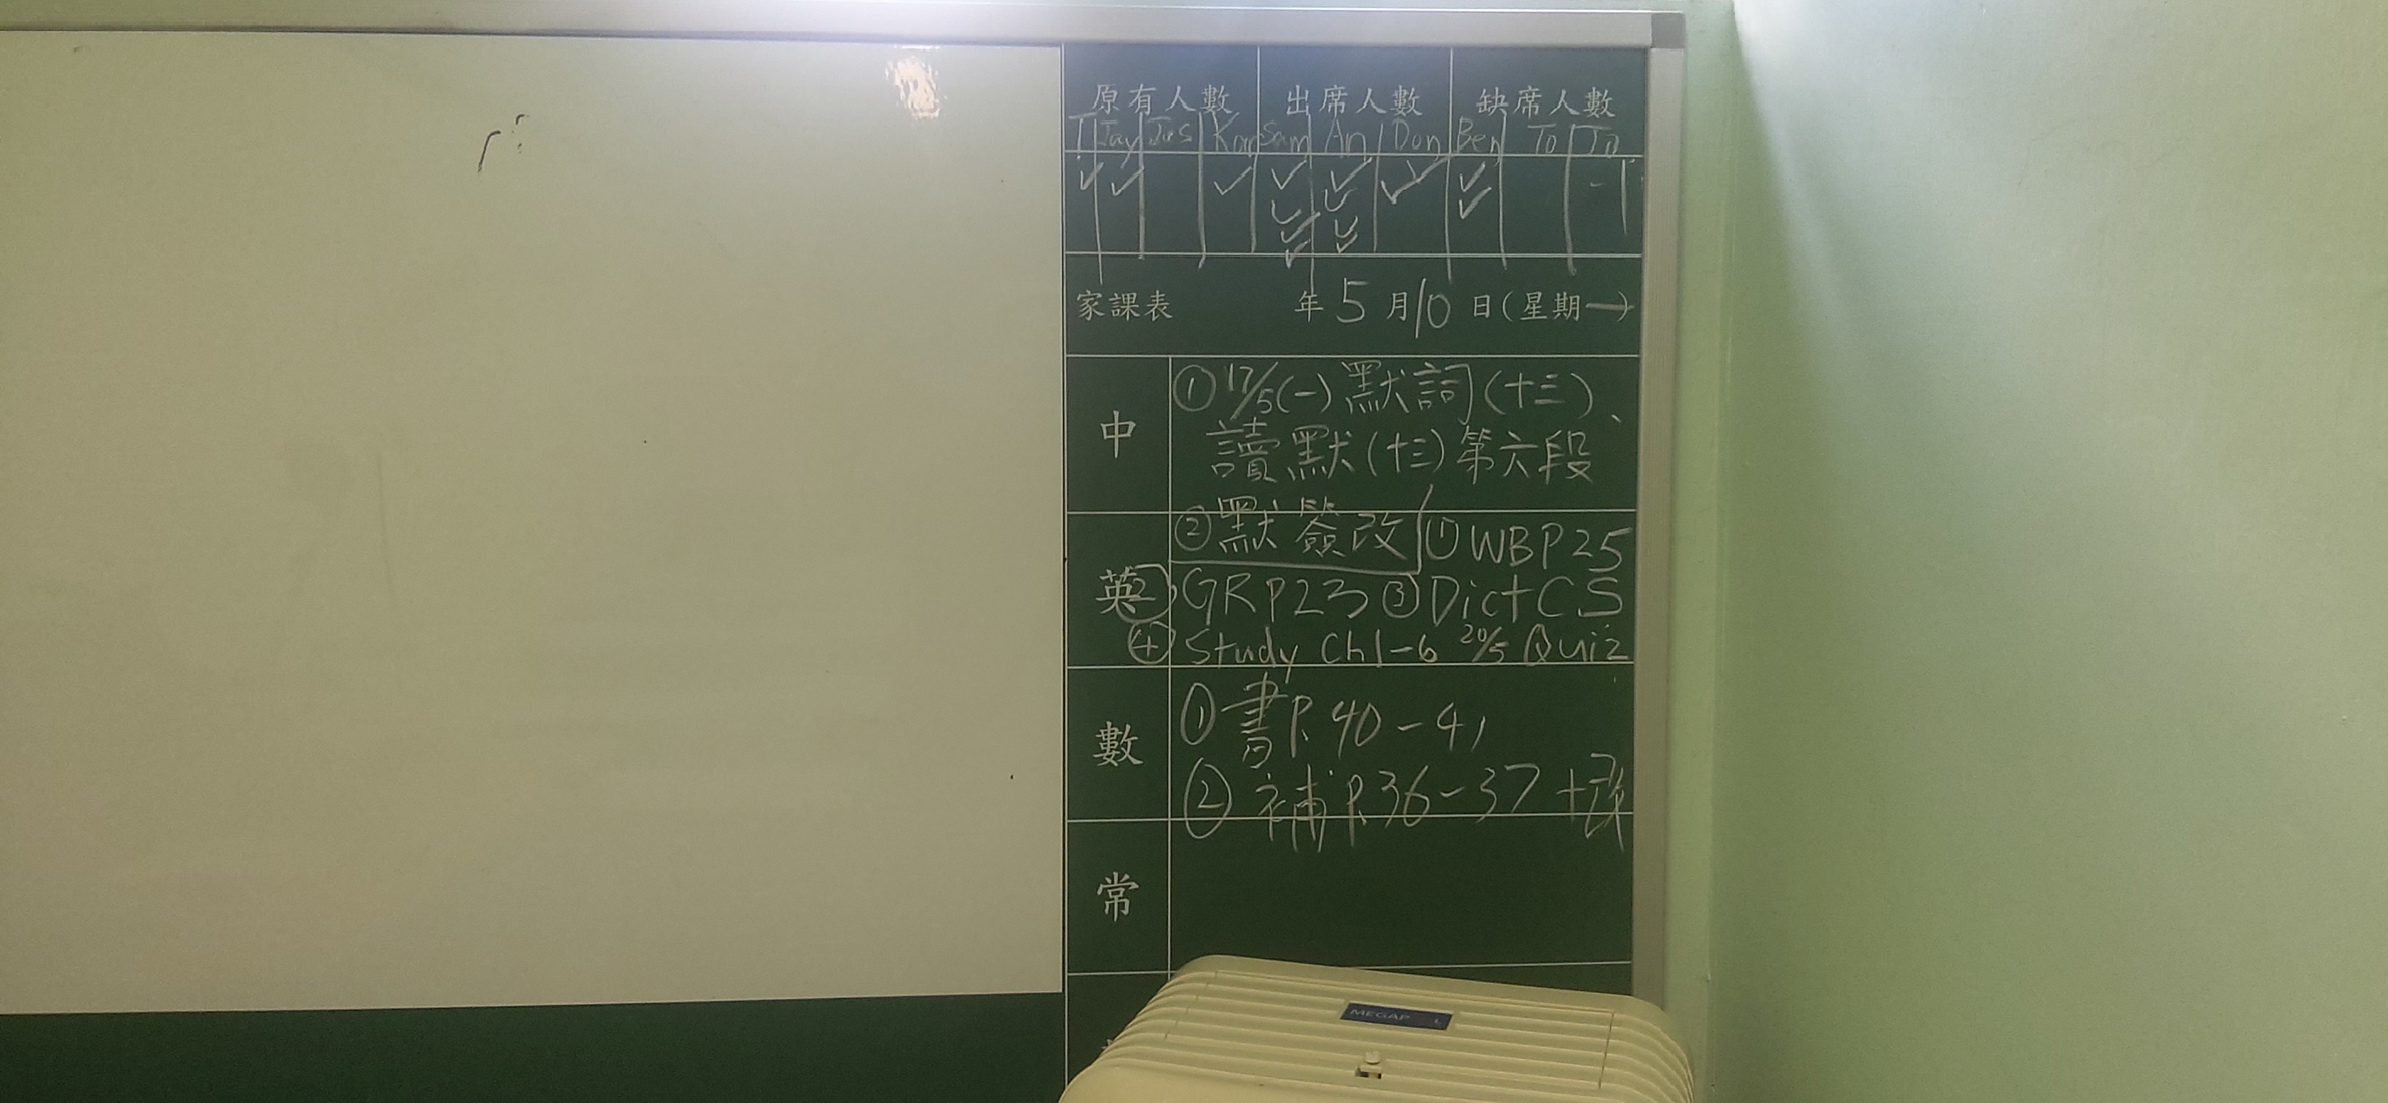 原有人數 出席人數 缺席人數
Jay Jas Kar Sam An Don Ben To Jo
家課表 年5月10日(星期一)
中
①17/5(一)默詞(十三)、
讀默(十三)第六段
②默簽改
英
①WBP25
②GRP23③DictCS
④Study Ch1-6 20/5 Quiz
數
①書P.40-41
②補P.36-37+改
常
MEGAP